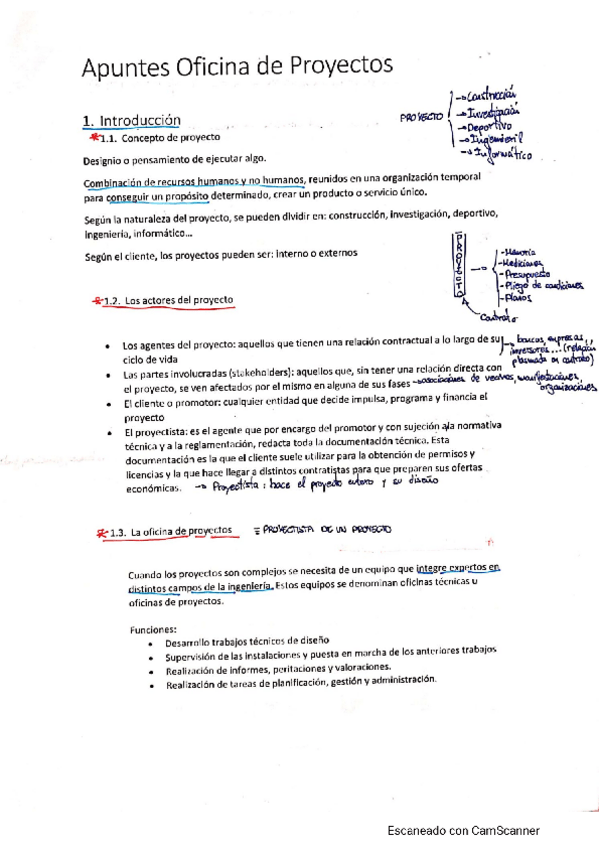 Apuntes Oficina de Proyectos
1. Introducción
PROYECTO
→ Construcción
→ Investigación
→ Deportivo
→ Ingenieril
→ Informático
* 1.1. Concepto de proyecto
Designio o pensamiento de ejecutar algo.
Combinación de recursos humanos y no humanos, reunidos en una organización temporal
para conseguir un propósito determinado, crear un producto o servicio único.
Según la naturaleza del proyecto, se pueden dividir en: construcción, investigación, deportivo,
ingeniería, informático...
Según el cliente, los proyectos pueden ser: interno o externos
PROYECTO →
- Memoria
- Mediciones
- Presupuesto
- Pliego de condiciones
- Planos
Contrato
* 1.2. Los actores del proyecto
• Los agentes del proyecto: aquellos que tienen una relación contractual a lo largo de su
ciclo de vida
→ bancos, empresas,
inversores... (relación
plasmada en contrato)
• Las partes involucradas (stakeholders): aquellos que, sin tener una relación directa con
el proyecto, se ven afectados por el mismo en alguna de sus fases → asociaciones de vecinos, manifestaciones,
organizaciones
• El cliente o promotor: cualquier entidad que decide impulsa, programa y financia el
proyecto
• El proyectista: es el agente que por encargo del promotor y con sujeción a la normativa
técnica y a la reglamentación, redacta toda la documentación técnica. Esta
documentación es la que el cliente suele utilizar para la obtención de permisos y
licencias y la que hace llegar a distintos contratistas para que preparen sus ofertas
económicas. → Proyectista: hace el proyecto entero y su diseño
* 1.3. La oficina de proyectos = PROYECTISTA DE UN PROYECTO
Cuando los proyectos son complejos se necesita de un equipo que integre expertos en
distintos campos de la ingeniería. Estos equipos se denominan oficinas técnicas u
oficinas de proyectos.
Funciones:
• Desarrollo trabajos técnicos de diseño
• Supervisión de las instalaciones y puesta en marcha de los anteriores trabajos
• Realización de informes, peritaciones y valoraciones.
• Realización de tareas de planificación, gestión y administración.
Escaneado con CamScanner